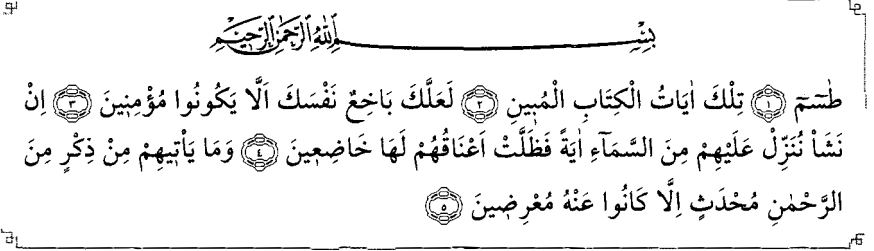 بِسْمِ اللّٰهِ الرَّحْمٰنِ الرَّحِيمِ
طٰسٓمٓ ﴿١﴾ تِلْكَ اٰيَاتُ الْكِتَابِ الْمُب۪ينِ ﴿٢﴾ لَعَلَّكَ بَاخِعٌ نَفْسَكَ اَلَّا يَكُونُوا مُؤْمِن۪ينَ ﴿٣﴾ اِنْ
نَشَأْ نُنَزِّلْ عَلَيْهِمْ مِنَ السَّمَٓاءِ اٰيَةً فَظَلَّتْ اَعْنَاقُهُمْ لَهَا خَاضِع۪ينَ ﴿٤﴾ وَمَا يَأْت۪يهِمْ مِنْ ذِكْرٍ مِنَ
الرَّحْمٰنِ مُحْدَثٍ اِلَّا كَانُوا عَنْهُ مُعْرِض۪ينَ ﴿٥﴾